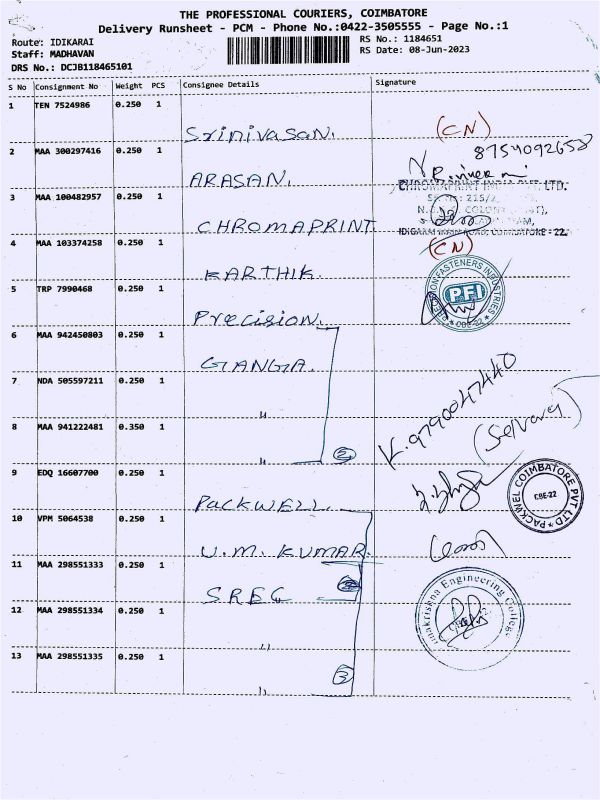 THE PROFESSIONAL COURIERS, COIMBATORE
Delivery Runsheet - PCM - Phone No.:0422-3505555 - Page No.:1
Route: IDIKARAI
RS No.: 1184651
Staff: MADHAVAN
RS Date: 08-Jun-2023
DRS No.: DCJB118465101
S No Consignment No Weight PCS Consignee Details Signature
1 TEN 7524986 0.250 1
Srinivasan. (CN)
8754092658
2 MAA 300297416 0.250 1
ARASAN.
CHROMAPRINT INDIA PVT. LTD.
3 MAA 100482957 0.250 1
CHROMAPRINT
4 MAA 103374258 0.250 1
(CN)
KARTHIK
5 TRP 7990468 0.250 1
PFI
CBE-22
Precision.
6 MAA 942450803 0.250 1
GANGA.
7 NDA 505597211 0.250 1
"
K. 9790047440
8 MAA 941222481 0.350 1
(Selvaraj)
"
9 EDQ 16607700 0.250 1
PACKWEL COIMBATORE PVT LTD
CBE-22
PACKWELL.
10 VPM 5064538 0.250 1
U.M. KUMAR.
11 MAA 298551333 0.250 1
SREC
Engineering College
12 MAA 298551334 0.250 1
"
13 MAA 298551335 0.250 1
3
"